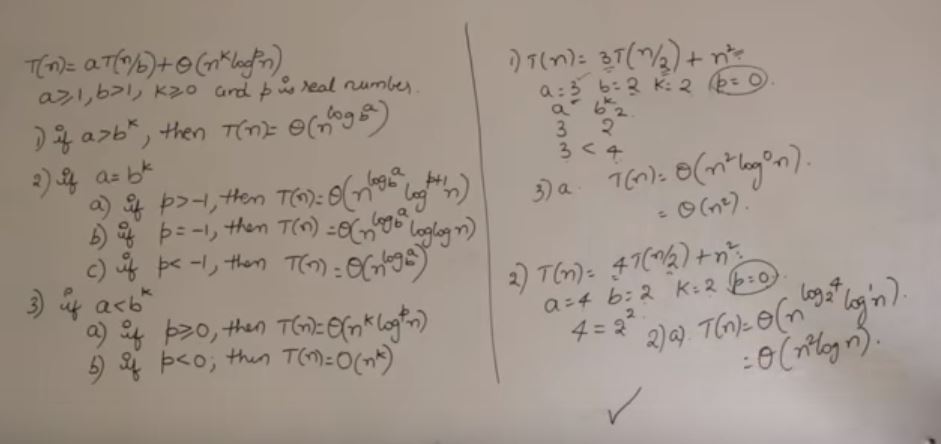 T(n)= aT(n/b)+Θ(n^k log^p n)
a≥1, b>1, k≥0 and p is real number.
1) if a>b^k, then T(n)= Θ(n^log_b^a)
2) if a=b^k
a) if p>-1, then T(n)=Θ(n^log_b^a log^p+1 n)
b) if p=-1, then T(n)=Θ(n^log_b^a loglogn)
c) if p<-1, then T(n)=Θ(n^log_b^a)
3) if a<b^k
a) if p≥0, then T(n)=Θ(n^k log^p n)
b) if p<0, then T(n)=O(n^k)
1) T(n)= 3T(n/2)+n^2
a=3 b=2 k=2 p=0
a b^k
3 2^2
3 < 4
3) a. T(n)= Θ(n^2 log^0 n).
= Θ(n^2).
2) T(n)= 4T(n/2)+n^2
a=4 b=2 k=2 p=0
4=2^2
2) a) T(n)=Θ(n^log_2^4 log^1 n).
=Θ(n^2 log n).